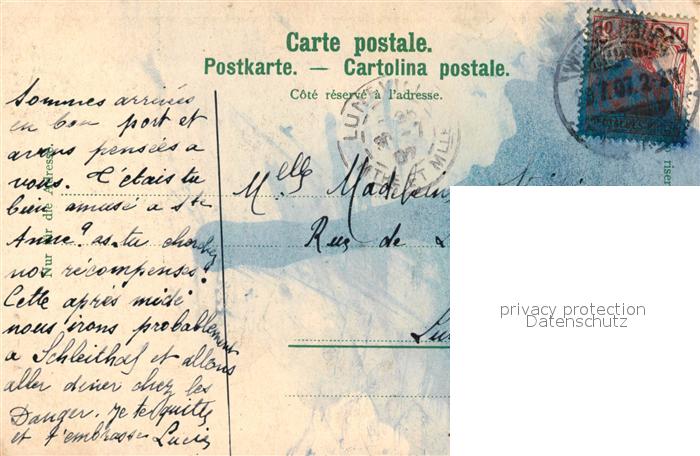 Carte postale.
Postkarte. — Cartolina postale.
Côté réservé à l'adresse.
Nur für die Adresse.
Sommes arrivées
en bon port et
avons pensées a
vous. T'étais tu
bien amusé a Ste
Anne? as-tu cherché
nos récompenses?
Cette après midi
nous irons probablement
a Schleithal et allons
aller diner chez les
Danger. Je te quitte
et t'embrasse Lucie
Melle Madelein
Rue de
Lu
LUN
ET MLLE
10 10
privacy protection
Datenschutz